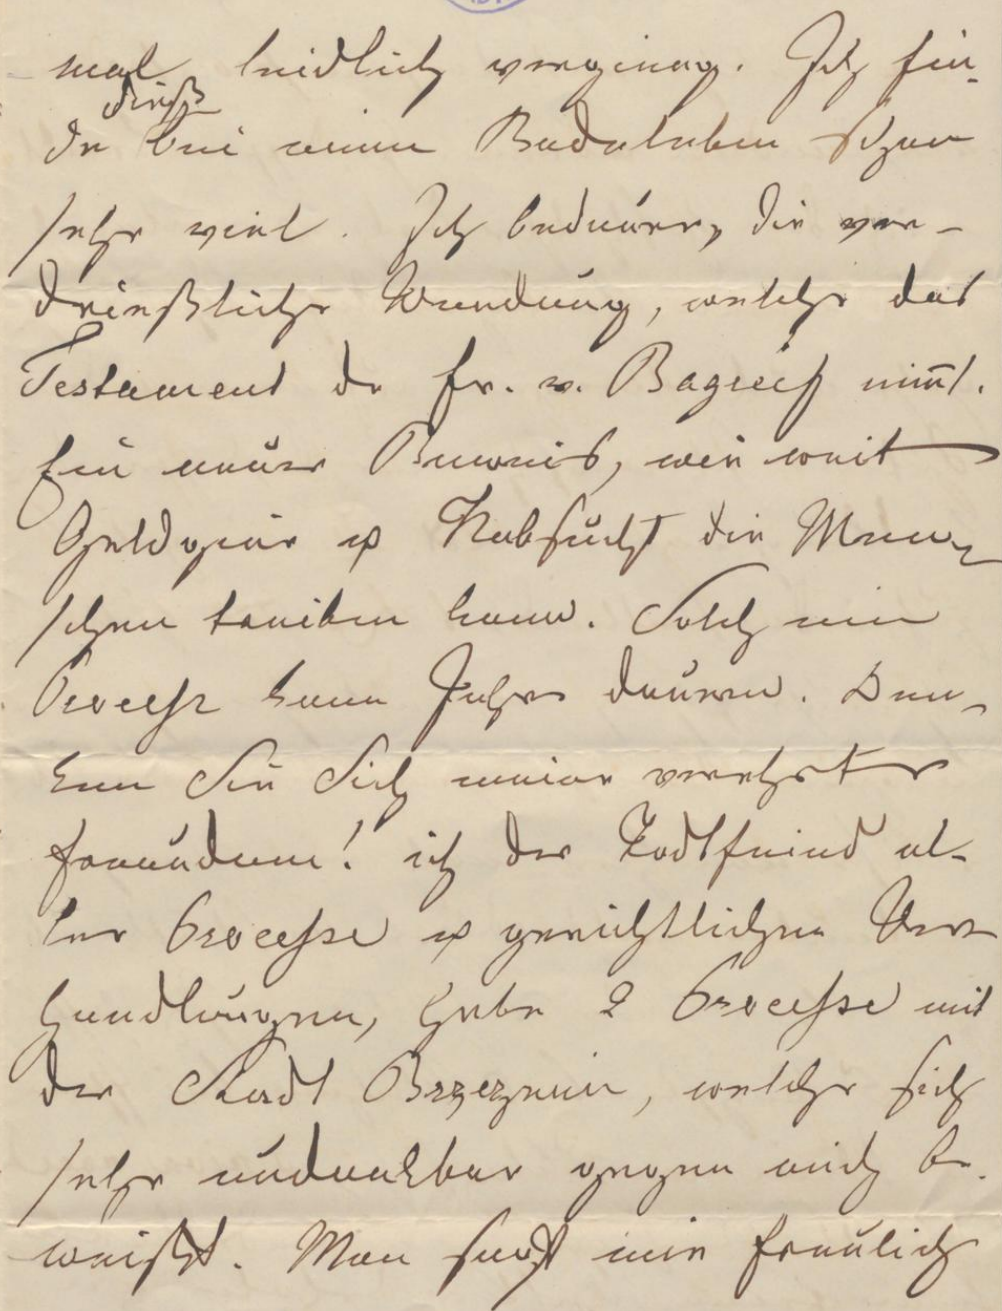 mal leidlich verging. Ich fin-
dieß
de bei einem Badeleben schon
sehr viel. Ich bedaure, die ver-
drießliche Wendung, welche das
Testament der Fr. v. Bagieńs nim̄t.
Ein neuer Beweis, wie weit
Geldgier u Habsucht die Men-
schen treiben kann. Solch ein
Proceß kann Jahre dauern. Den-
ken Sie Sich meine verehrte
Freundinn! ich der Todtfeind al-
ler Processe u gerichtlichen Ver-
handlungen, habe 2 Processe mit
der Stadt Brzezenie, welche sich
sehr undankbar gegen mich be-
weißt. Man hast mir freulich